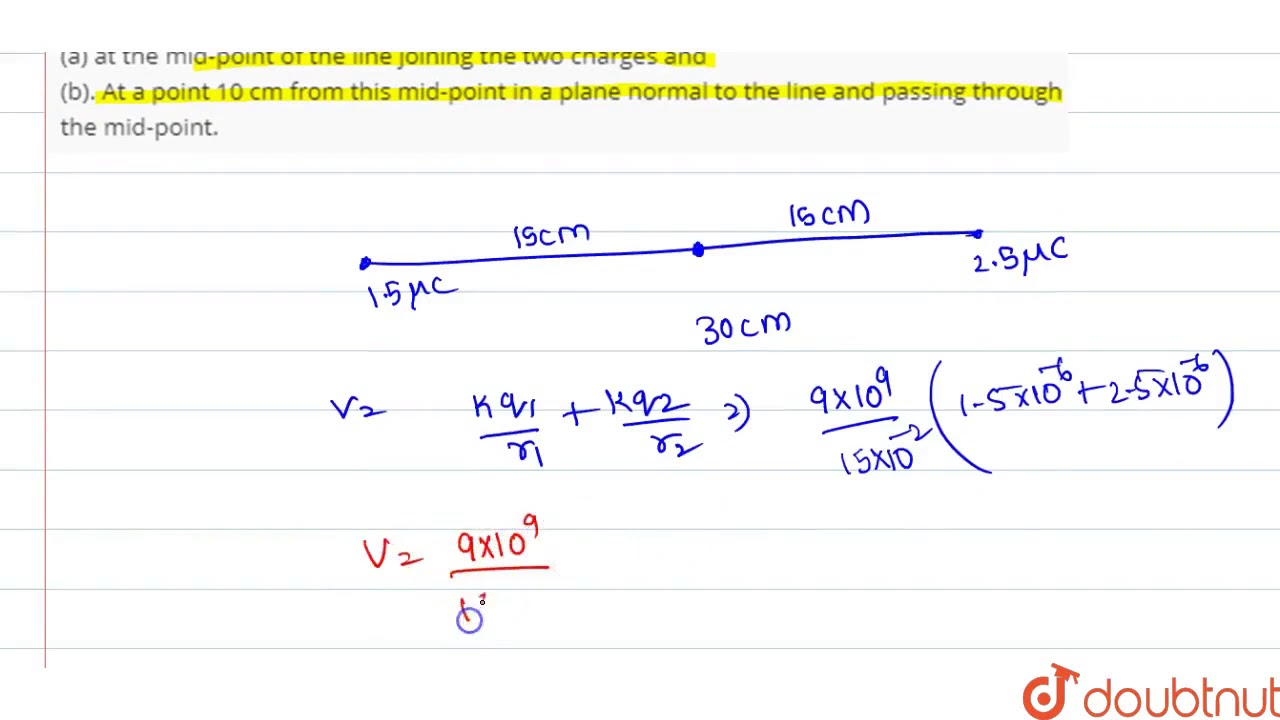 (a) at the mid-point of the line joining the two charges and
(b). At a point 10 cm from this mid-point in a plane normal to the line and passing through
the mid-point.
15cm 15cm
1.5μC 2.5μC
30cm
V= Kq1/r1 + Kq2/r2 ⇒ 9×10^9/15×10^-2 (1.5×10^-6+2.5×10^-6)
V= 9×10^9
doubtnut